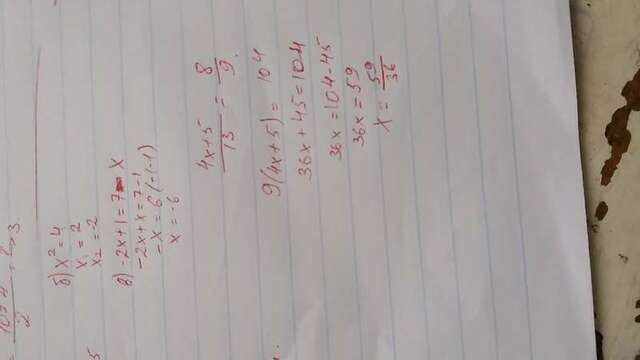 = 10+4 / 2 = 2 > 3.
5
б) x² = 4
x₁ = 2
x₂ = -2
в) -2x+1 = 7 - x
-2x+x = 7-1
-x = 6 (-1-1)
x = -6
4x+5 / 13 = 8 / 9.
9(4x+5) = 104
36x + 45 = 104
36x = 104-45
36x = 59
x = 59 / 36